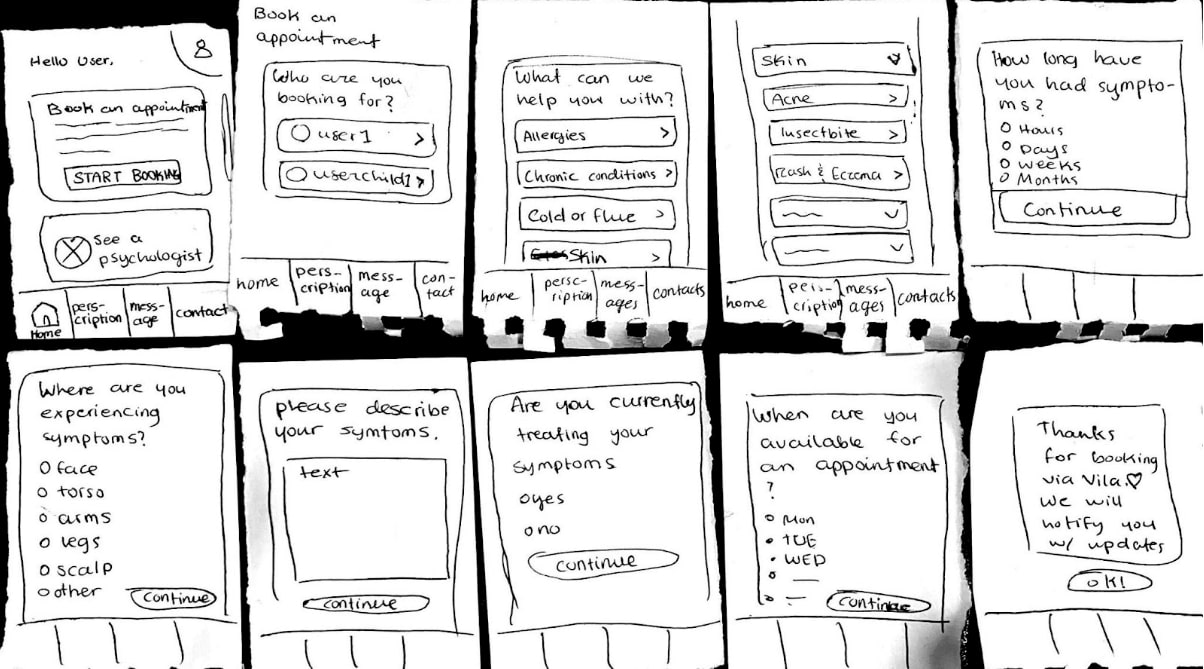 Hello User,
Book an appointment
START BOOKING
See a
psychologist
Home
pers-
cription
mess-
age
contact
Book an
appointment
Who are you
booking for?
user1 >
userchild1 >
home
pers-
cription
mess-
age
con-
tact
What can we
help you with?
Allergies >
Chronic conditions >
Cold or flue >
Skin >
home
persc-
ription
mess-
ages
contacts
Skin
Acne >
Insectbite >
Rash & Eczema >
home
pers-
cription
mess-
ages
contacts
How long have
you had sympto-
ms?
Hours
Days
Weeks
Months
Continue
Where are you
experiencing
symptoms?
face
torso
arms
legs
scalp
other
continue
please describe
your symtoms.
text
continue
Are you currently
treating your
symptoms
yes
no
continue
When are you
available for
an appointment
?
Mon
TUE
WED
continue
Thanks
for booking
via Vila.♡
We will
notify you
w/ updates
OK!